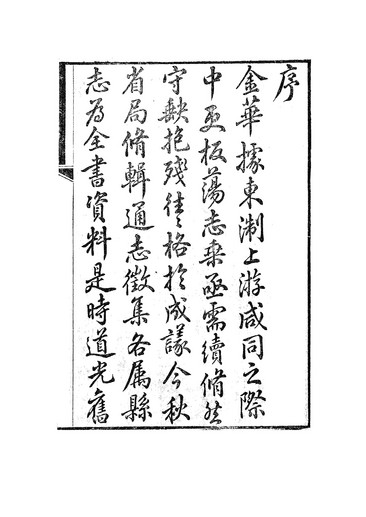 序
金華據東淛上游咸同之際
中更板蕩志乘亟需續脩然
守缺抱殘往往格於成議今秋
省局脩輯通志徵集各属縣
志為全書資料是時道光舊